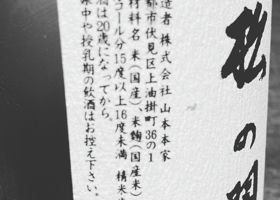 松の
造者 株式会社 山本本家
都市伏見区上油掛町36の1
材料名 米(国産)、米麹(国産米)
コール分15度以上16度未満 精米
酒は20歳になってから。
娠中や授乳期の飲酒はお控え下さい。